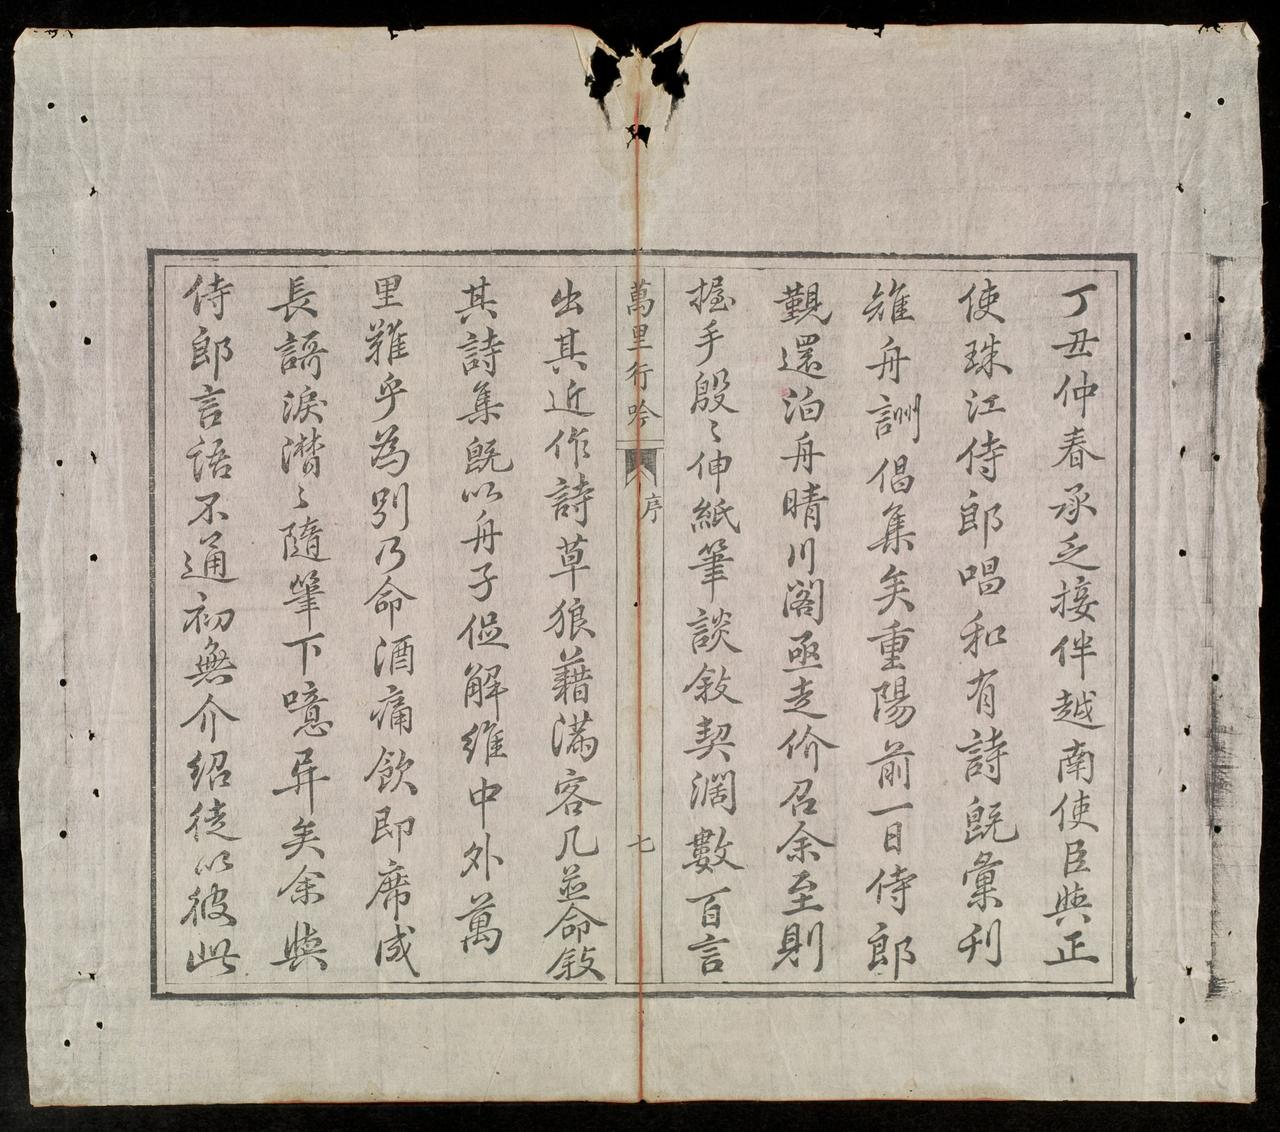 丁丑仲春承乏接伴越南使臣與正
使珠江侍郎唱和有詩既彙刊
雉舟詶倡集矣重陽前一日侍郎
覲還泊舟晴川閣亟走价召余至則
握手殷〻伸紙筆談敘契濶數百言
萬里行吟 序 七
出其近作詩草狼藉滿客几並命敘
其詩集既以舟子促解維中外萬
里難乎為別乃命酒痛飲即席成
長謌淚潸〻隨筆下噫异矣余與
侍郎言語不通初無介紹徒以彼此